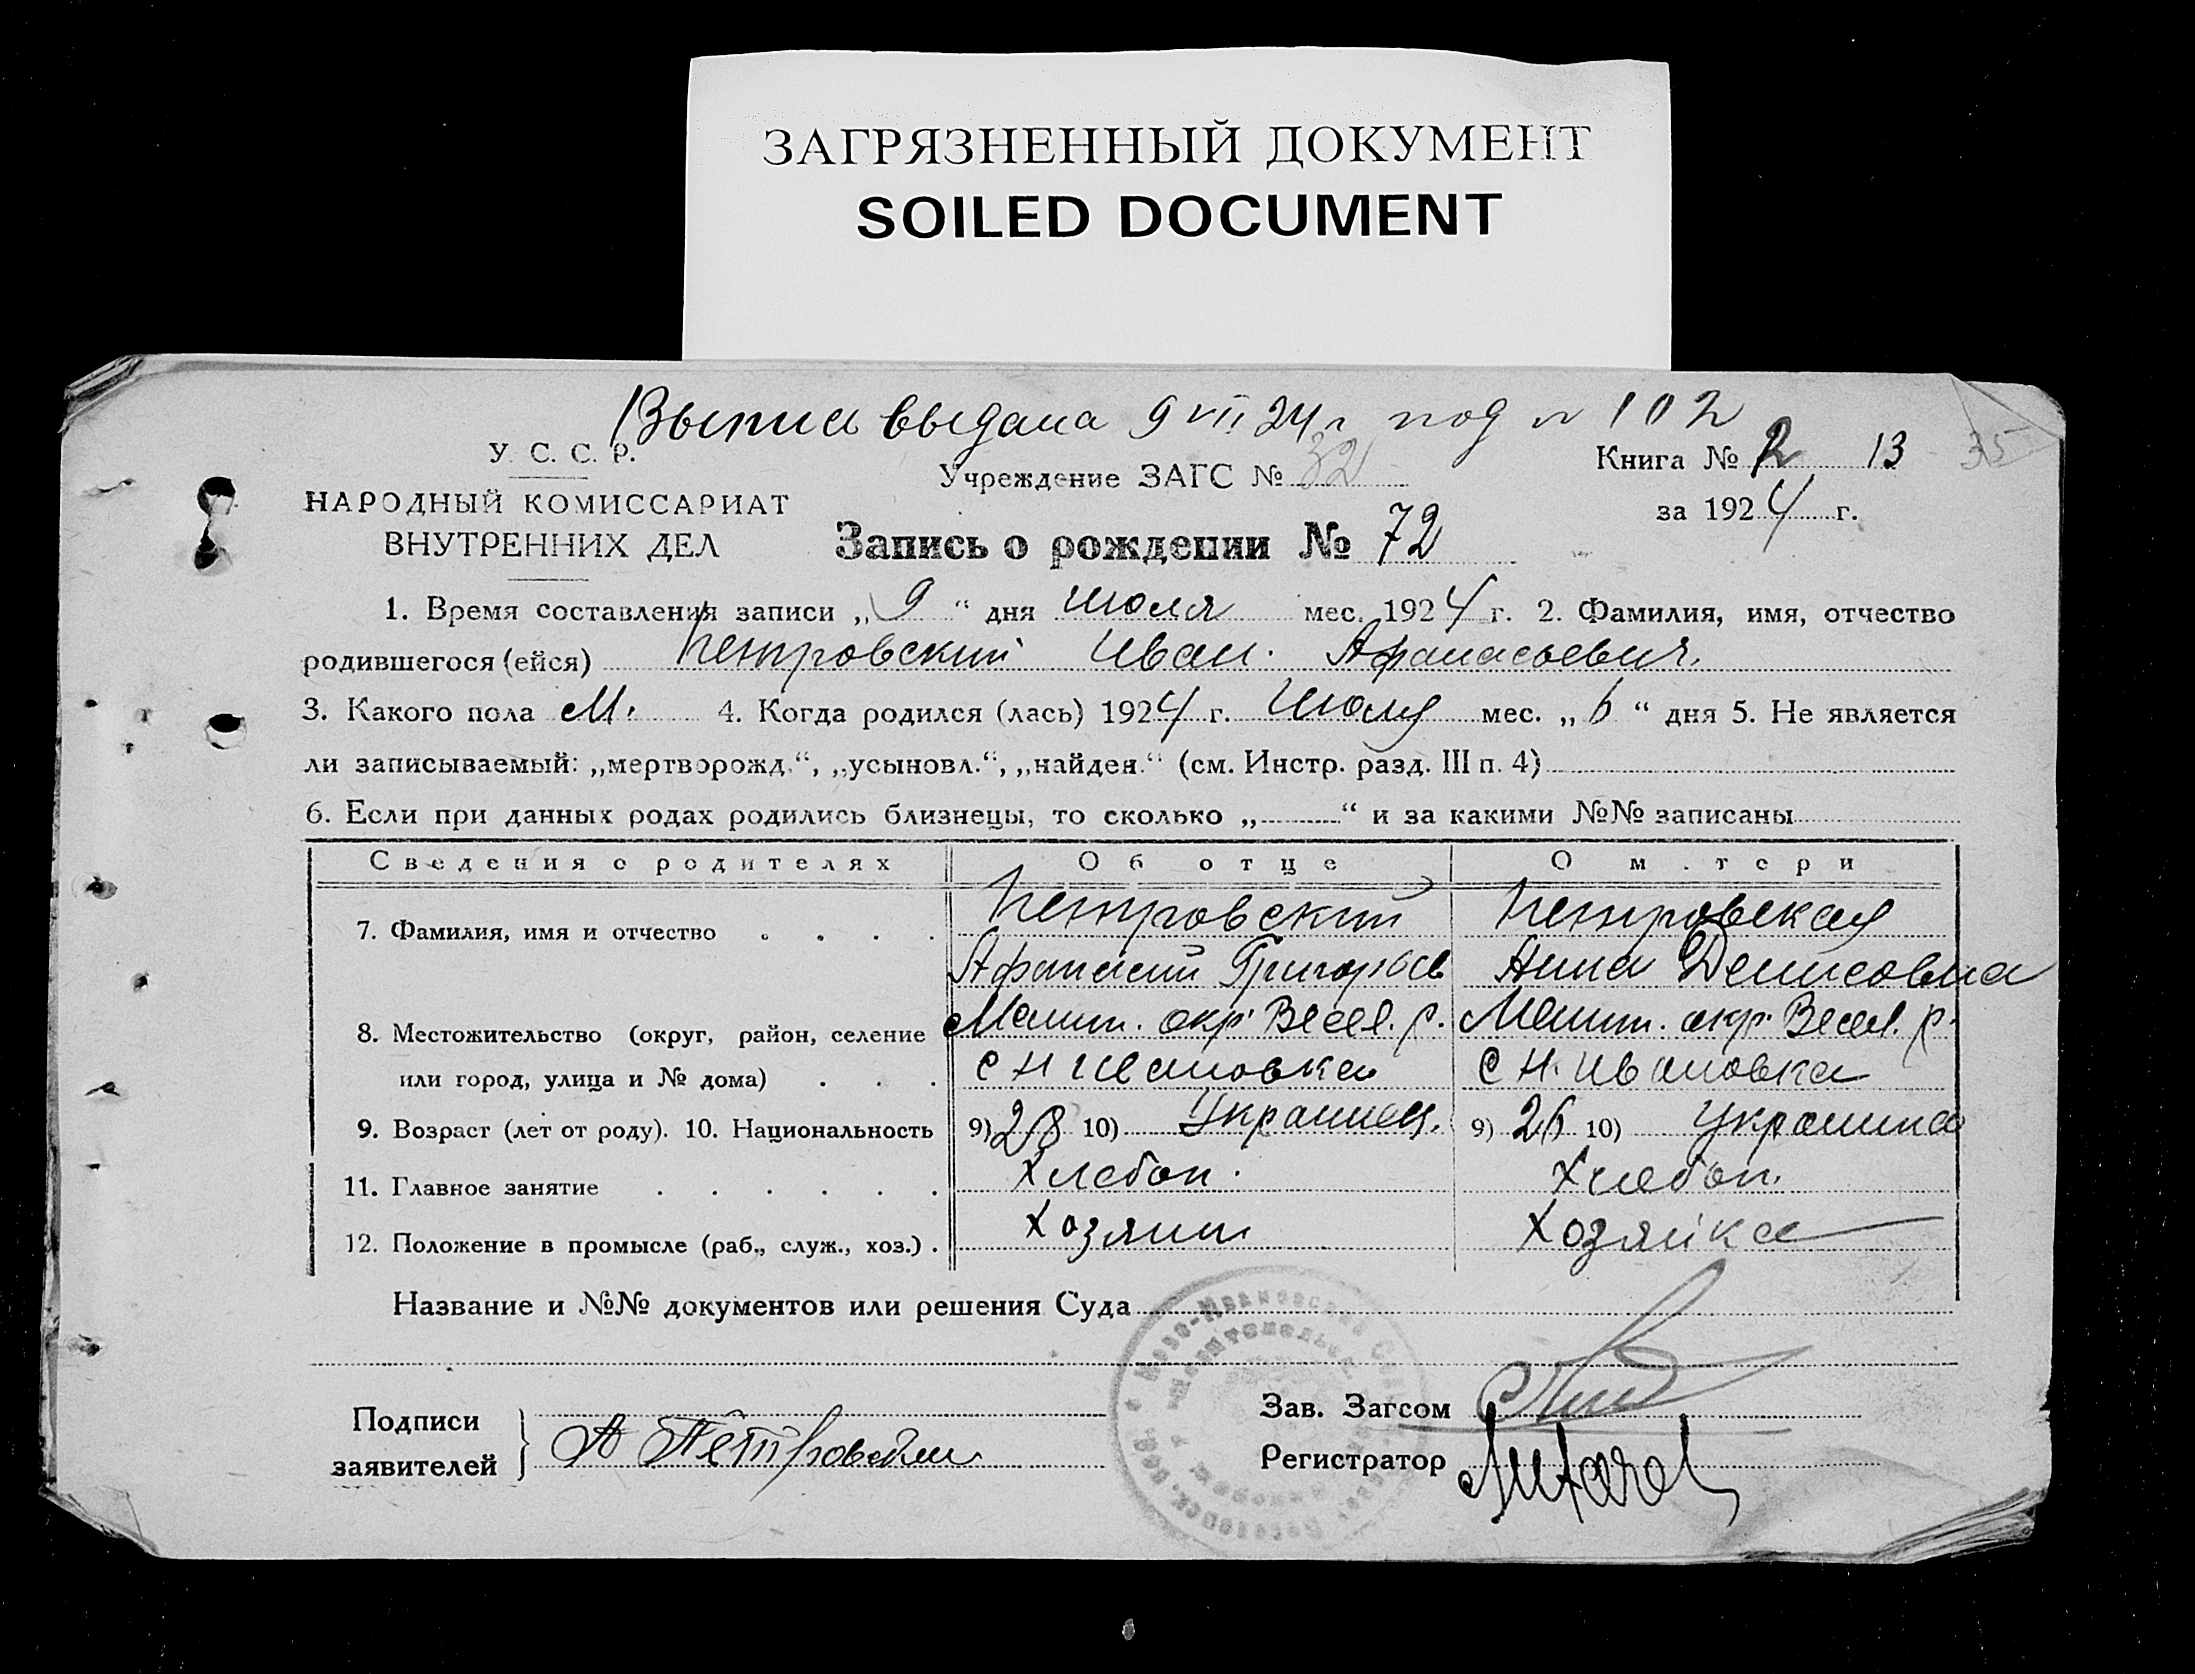 ЗАГРЯЗНЕННЫЙ ДОКУМЕНТ
SOILED DOCUMENT
Выпись выдана 9 VII 24 г под № 102
У. С. С. Р.
НАРОДНЫЙ КОМИССАРИАТ
ВНУТРЕННИХ ДЕЛ
Учреждение ЗАГС № 32
Книга № 2 13 35
за 1924 г.
Запись о рождении № 72
1. Время составления записи „ 9 “ дня июля мес. 1924 г. 2. Фамилия, имя, отчество
родившегося (ейся) Петровский Иван Афанасьевич.
3. Какого пола М. 4. Когда родился (лась) 1924 г. Июля мес. „ 6 “ дня 5. Не является
ли записываемый: „мертворожд.“, „усыновл.“, „найден.“ (см. Инстр. разд. III п. 4)
6. Если при данных родах родились близнецы, то сколько „ “ и за какими №№ записаны
Сведения о родителях Об отце О м.тери
7. Фамилия, имя и отчество Петровский Петровская
Афанасий Григорьев Анна Денисовна
8. Местожительство (округ, район, селение Мелит. окр. Весел. р. Мелит. окр. Весел. р.
или город, улица и № дома) с Н Ивановка с Н. Ивановка
9. Возраст (лет от роду). 10. Национальность 9) 28 10) Украинец. 9) 26 10) Украинка
11. Главное занятие Хлебоп. Хлебоп.
12. Положение в промысле (раб., служ., хоз.) Хозяин Хозяйка
Название и №№ документов или решения Суда
Подписи
заявителей } А Петровский
Зав. Загсом
Регистратор